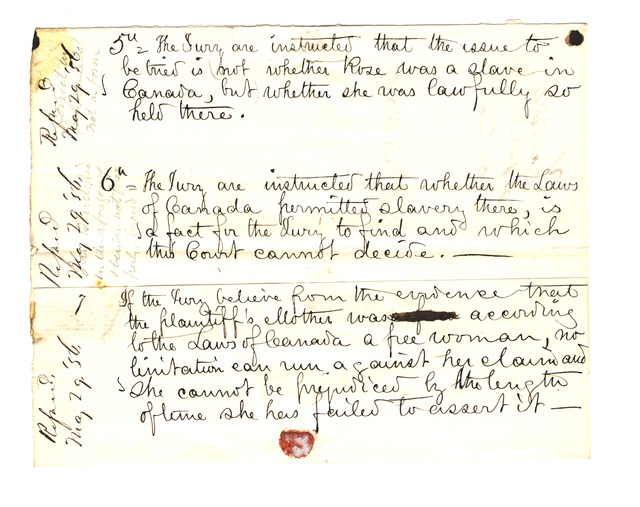 5th = The Jury are instructed that the issue to
be tried is not whether Rose was a slave in
Canada, but whether she was lawfully so
held there.
6th = The Jury are instructed that whether the Laws
of Canada permitted slavery there, is
a fact for the Jury to find and which
this Court cannot decide. —
7 If the Jury believe from the evidence that
the plaintiff's Mother was according
to the Laws of Canada a free woman, no
limitation can run against her claim and
she cannot be prejudiced by the length
of time she has failed to assert it —
Refused.
May 29 '56.
Refused.
May 29 '56.
Refused.
May 29 '56.